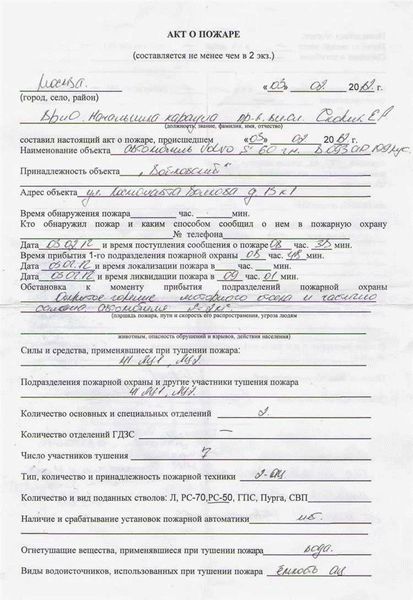 АКТ О ПОЖАРЕ
(составляется не менее чем в 2 экз.)
Москва. «03» 02 2012 г.
(город, село, район)
Врио Начальника караула пр-к вн.сл.
(должность, звание, фамилия, имя, отчество)
составил настоящий акт о пожаре, происшедшем «03» 02 2012 г.
Наименование объекта автомобиль Volvo S 60 г.н.
Принадлежность объекта
Адрес объекта ул. Космонавта Волкова д 15 к 1
Время обнаружения пожара час. мин.
Кто обнаружил пожар и каким способом сообщил о нем в пожарную охрану
№ телефона
Дата 03.02.12 и время поступления сообщения о пожаре 08 час. 33 мин.
Время прибытия 1-го подразделения пожарной охраны 08 час. 48 мин.
Дата 03.02.12 и время локализации пожара в час. мин.
Дата 03.02.12 и время ликвидации пожара в 09 час. 01 мин.
Обстановка к моменту прибытия подразделений пожарной охраны
Открытое горение моторного отсека и частично
салона автомобиля 2-2м².
(площадь пожара, пути и скорость его распространения, угроза людям
животным, опасность обрушений и взрывов, действия населения)
Силы и средства, применявшиеся при тушении пожара:
41 АЦ1, АЦ2
Подразделения пожарной охраны и другие участники тушения пожара
41 АЦ1, АЦ2.
Количество основных и специальных отделений 2.
Количество отделений ГДЗС —
Число участников тушения 7
Тип, количество и принадлежность пожарной техники 2-АЦ
Количество и вид поданных стволов: Л, РС-70, РС-50, ГПС, Пурга, СВП
Наличие и срабатывание установок пожарной автоматики нет.
Огнетушащие вещества, применявшиеся при тушении пожара вода.
Виды водоисточников, использованных при тушении пожара Емкость АЦ